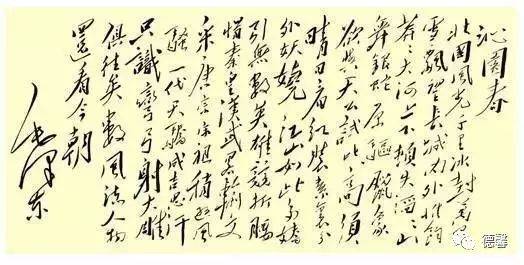 沁園春
北國風光千里冰封萬里
雪飄望長城內外惟餘
莽莽大河上下頓失滔滔山
舞銀蛇原驅臘象
欲與天公試比高須
晴日看紅裝素裹分
外妖嬈江山如此多嬌
引無數英雄競折腰
惜秦皇漢武略輸文
采唐宗宋祖稍遜風
騷一代天驕成吉思汗
只識彎弓射大雕
俱往矣數風流人物
還看今朝
毛澤東
德馨